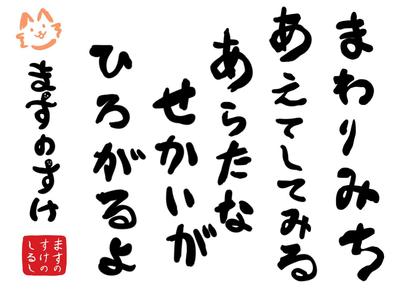 まわりみち
あえてしてみる
あらたな
せかいが
ひろがるよ
ますのすけ
ますの
すけの
しるし